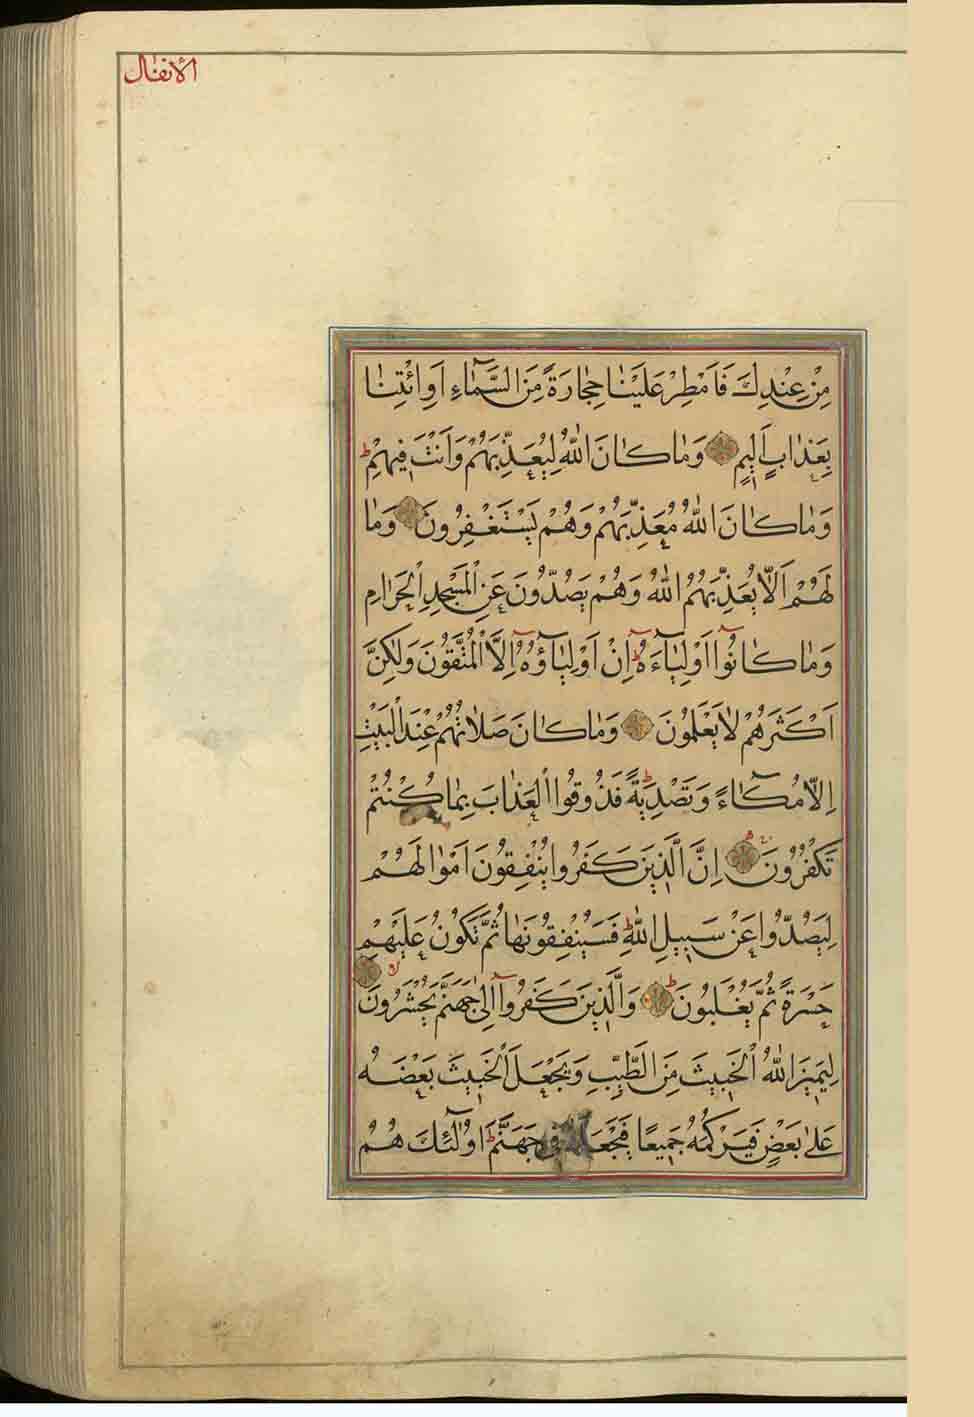 الانفال
مِنْ عِنْدِكَ فَاَمْطِرْ عَلَيْنَا حِجَارَةً مِنَ السَّمَٓاءِ اَوِ ائْتِنَا
بِعَذَابٍ اَلِيمٍ وَمَا كَانَ اللّٰهُ لِيُعَذِّبَهُمْ وَاَنْتَ فِيهِمْ ط
وَمَا كَانَ اللّٰهُ مُعَذِّبَهُمْ وَهُمْ يَسْتَغْفِرُونَ وَمَا
لَهُمْ اَلَّا يُعَذِّبَهُمُ اللّٰهُ وَهُمْ يَصُدُّونَ عَنِ الْمَسْجِدِ الْحَرَامِ
وَمَا كَانُٓوا اَوْلِيَٓاءَهُ ط اِنْ اَوْلِيَٓاؤُهُٓ اِلَّا الْمُتَّقُونَ وَلٰكِنَّ
اَكْثَرَهُمْ لَا يَعْلَمُونَ وَمَا كَانَ صَلَاتُهُمْ عِنْدَ الْبَيْتِ
اِلَّا مُكَٓاءً وَتَصْدِيَةً ط فَذُوقُوا الْعَذَابَ بِمَا كُنْتُمْ
تَكْفُرُونَ اِنَّ الَّذِينَ كَفَرُوا يُنْفِقُونَ اَمْوَالَهُمْ
لِيَصُدُّوا عَنْ سَبِيلِ اللّٰهِ ط فَسَيُنْفِقُونَهَا ثُمَّ تَكُونُ عَلَيْهِمْ
حَسْرَةً ثُمَّ يُغْلَبُونَ ط وَالَّذِينَ كَفَرُٓوا اِلٰى جَهَنَّمَ يُحْشَرُونَ
لِيَمِيزَ اللّٰهُ الْخَبِيثَ مِنَ الطَّيِّبِ وَيَجْعَلَ الْخَبِيثَ بَعْضَهُ
عَلٰى بَعْضٍ فَيَرْكُمَهُ جَمِيعًا فَيَجْعَلَهُ فِي جَهَنَّمَ ط اُولٰٓئِكَ هُمُ